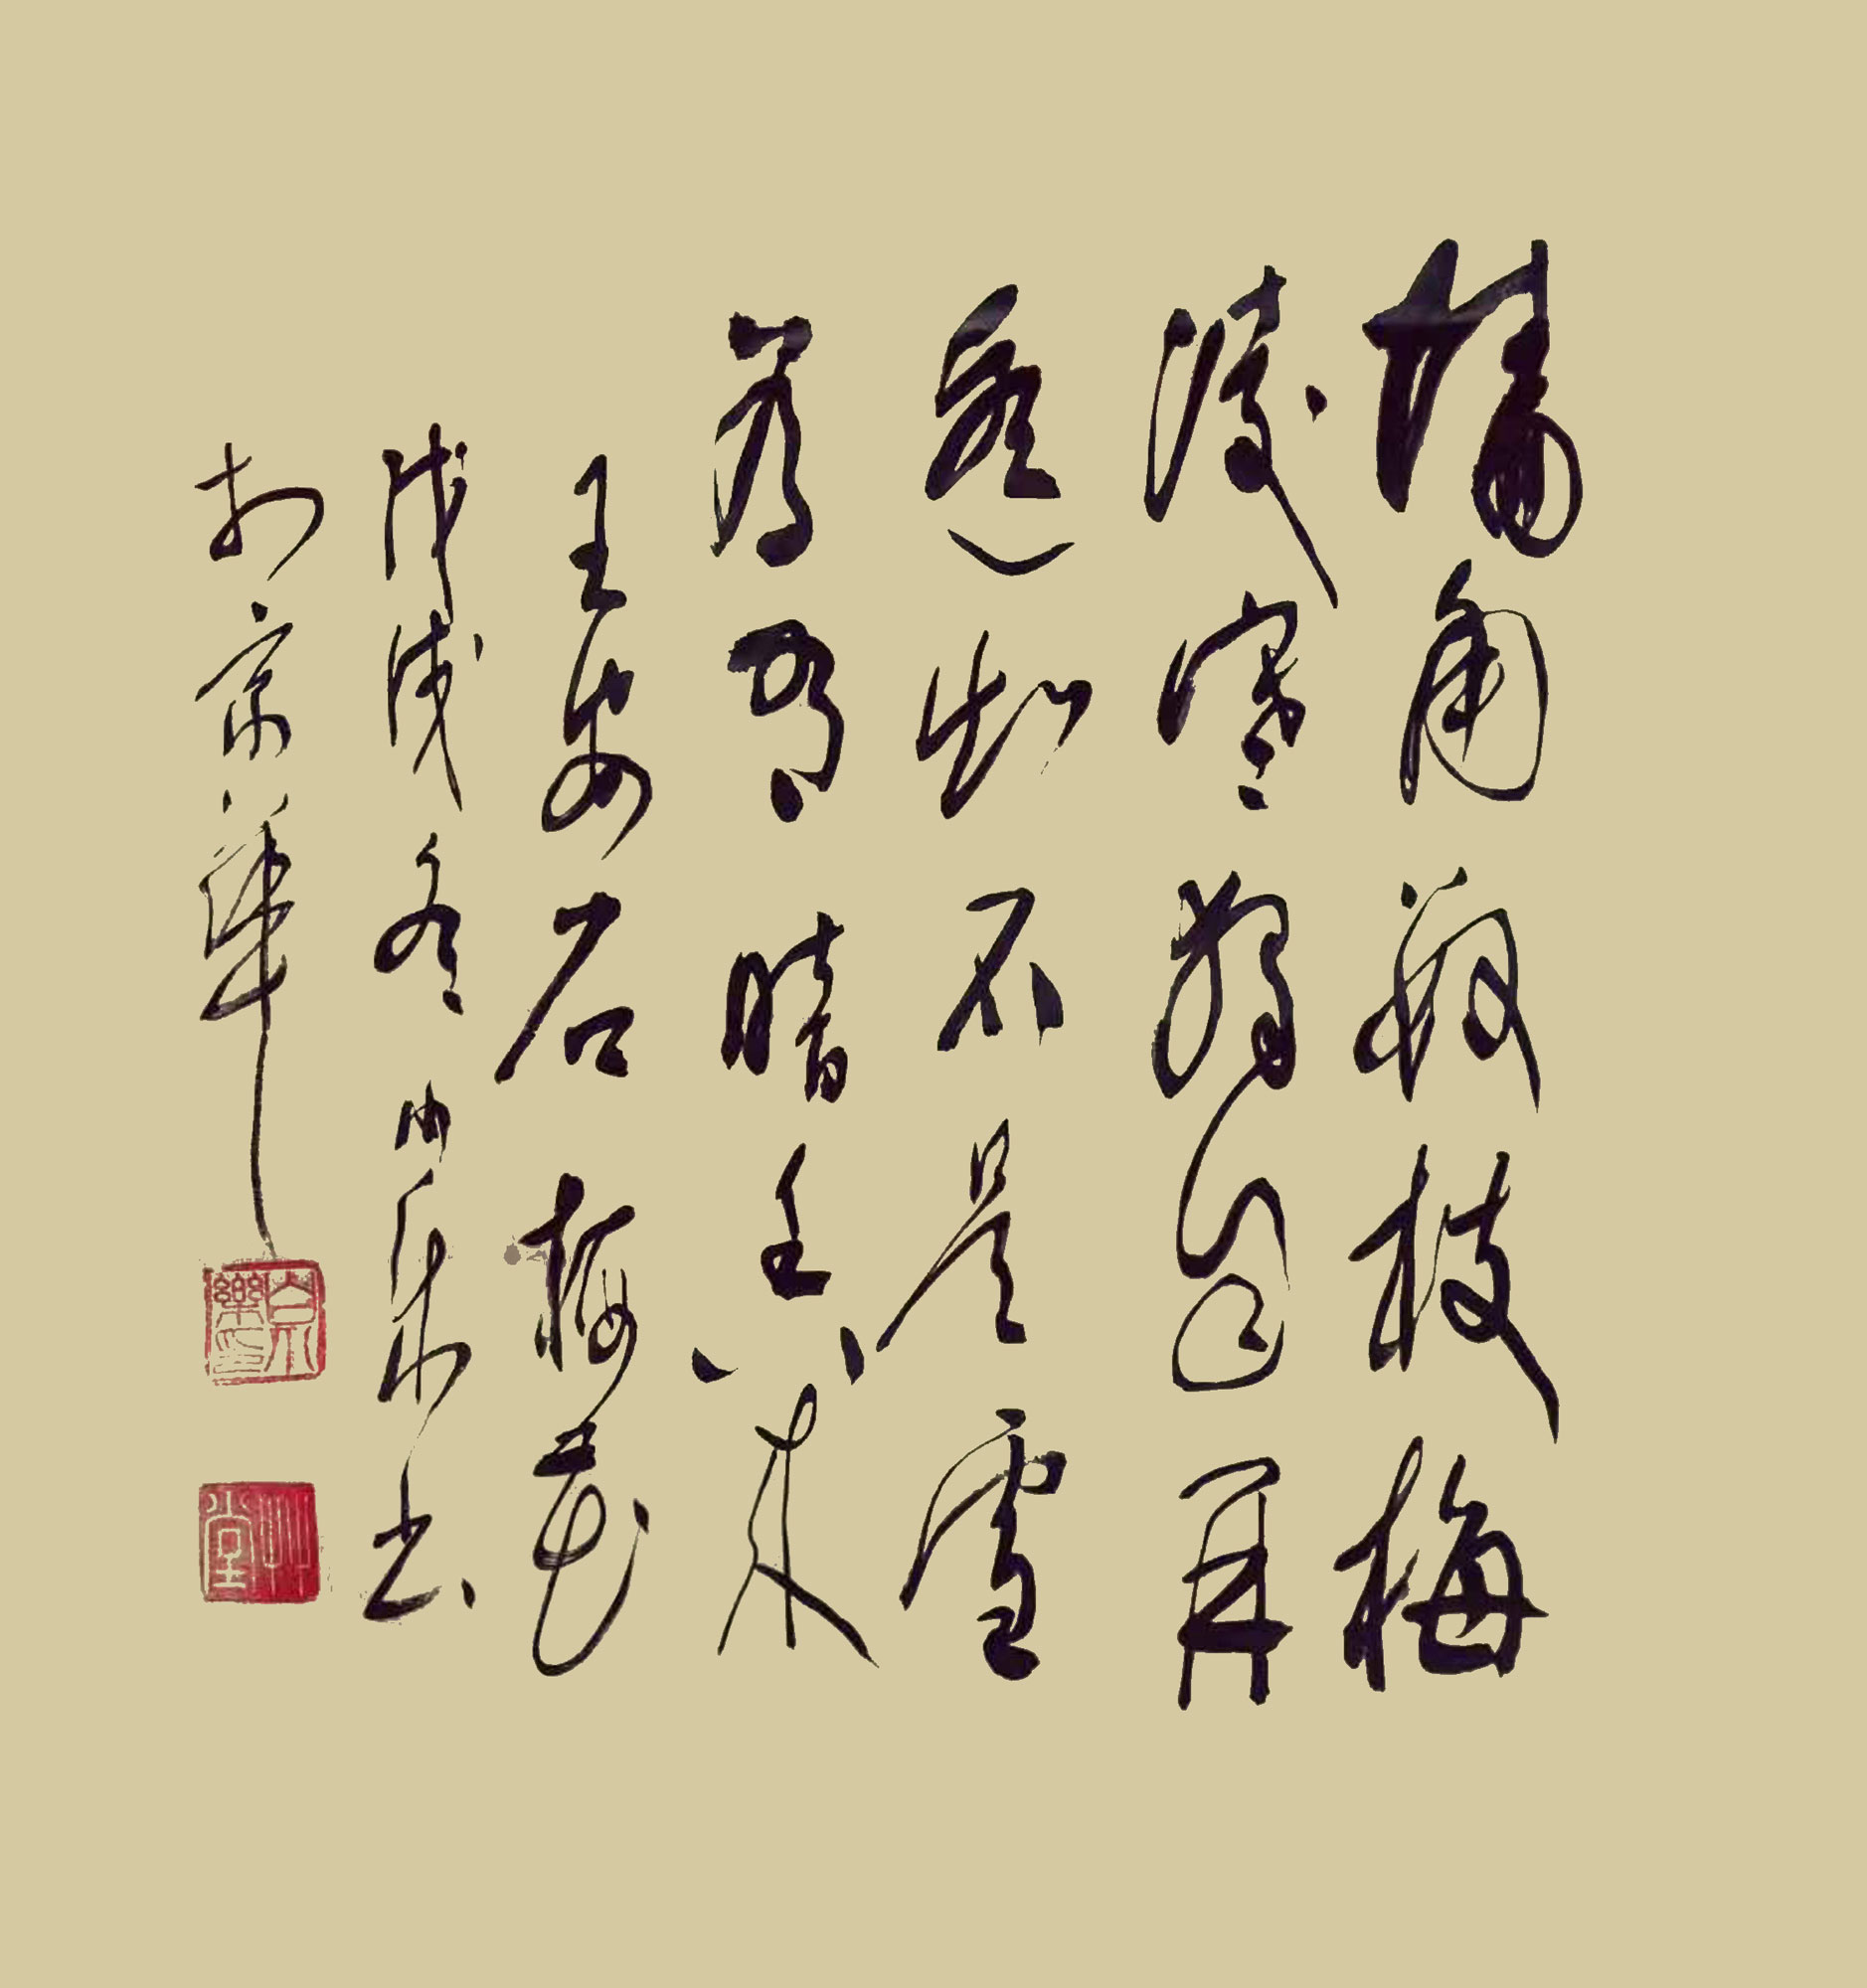 墙角数枝梅
凌寒独自开
遥知不是雪
为有暗香来
王安石 梅花
戊戌冬 书
於京華